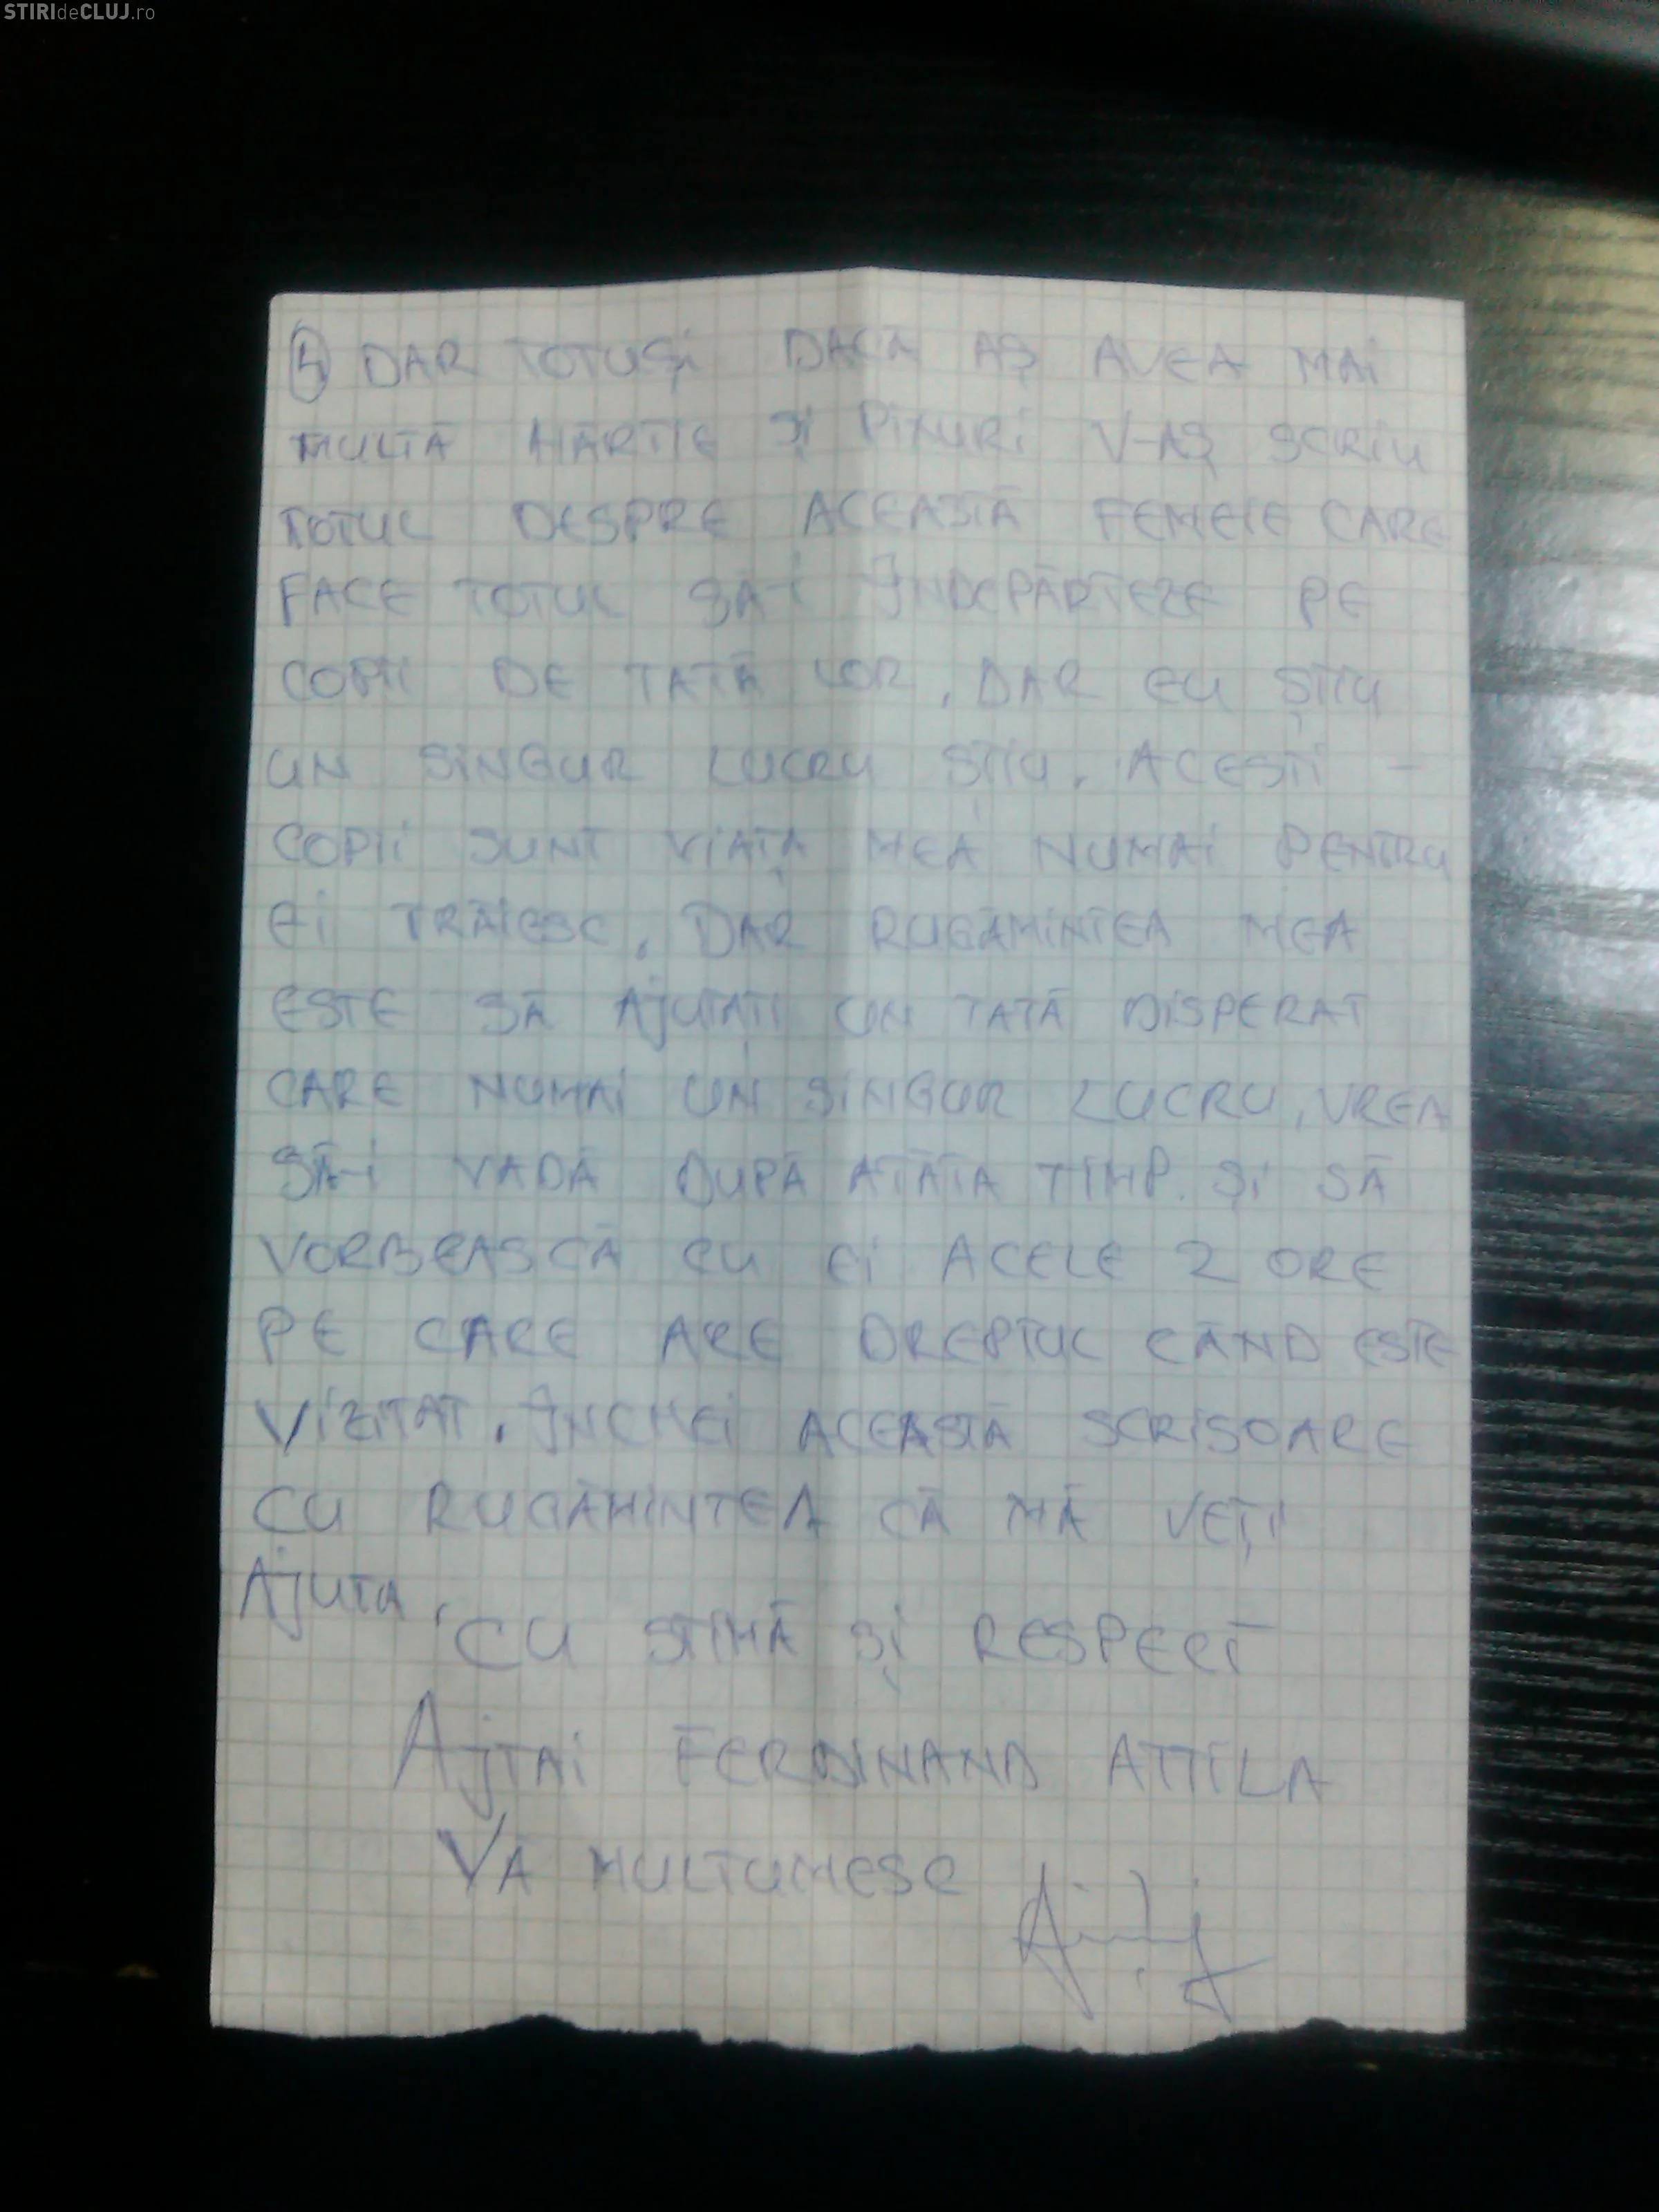 STIRIdeCLUJ.ro
④ DAR TOTUȘI DACĂ AȘ AVEA MAI
MULTĂ HÂRTIE ȘI PIXURI V-AȘ SCRIU
TOTUL DESPRE ACEASTĂ FEMEIE CARE
FACE TOTUL SĂ-I ÎNDEPĂRTEZE PE
COPII DE TATĂ LOR, DAR EU ȘTIU
UN SINGUR LUCRU ȘTIU. ACEȘTI -
COPII SUNT VIAȚA MEA NUMAI PENTRU
EI TRĂIESC. DAR RUGĂMINTEA MEA
ESTE SĂ AJUTAȚI UN TATĂ DISPERAT
CARE NUMAI UN SINGUR LUCRU, VREA
SĂ-I VADĂ DUPĂ ATÂTA TIMP. ȘI SĂ
VORBEASCĂ CU EI ACELE 2 ORE
PE CARE ARE DREPTUL CÂND ESTE
VIZITAT. ÎNCHEI ACEASTĂ SCRISOARE
CU RUGĂMINTEA CĂ MĂ VEȚI
AJUTA,
CU STIMĂ ȘI RESPECT
AJTAI FERDINAND ATTILA
VĂ MULTUMESC